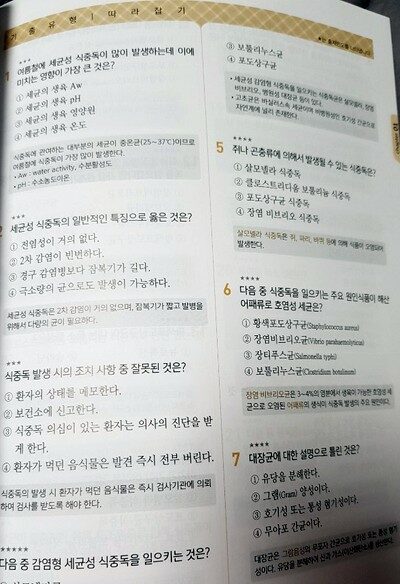 기 출 유 형 | 따 라 잡 기
★는 출제빈도를 나타냅니다
1
여름철에 세균성 식중독이 많이 발생하는데 이에
미치는 영향이 가장 큰 것은?
① 세균의 생육 Aw
② 세균의 생육 pH
③ 세균의 생육 영양원
④ 세균의 생육 온도
식중독에 관여하는 대부분의 세균이 중온균(25~37℃)이므로
여름철에 식중독이 가장 많이 발생한다.
• Aw : water activity, 수분활성도
• pH : 수소농도이온
2
세균성 식중독의 일반적인 특징으로 옳은 것은?
① 전염성이 거의 없다.
② 2차 감염이 빈번하다.
③ 경구 감염병보다 잠복기가 길다.
④ 극소량의 균으로도 발생이 가능하다.
세균성 식중독은 2차 감염이 거의 없으며, 잠복기가 짧고 발병을
위해서 다량의 균이 필요하다.
식중독 발생 시의 조치 사항 중 잘못된 것은?
① 환자의 상태를 메모한다.
② 보건소에 신고한다.
③ 식중독 의심이 있는 환자는 의사의 진단을 받
게 한다.
④ 환자가 먹던 음식물은 발견 즉시 전부 버린다.
식중독의 발생 시 환자가 먹던 음식물은 즉시 검사기관에 의뢰
하여 검사를 받도록 해야 한다.
다음 중 감염형 세균성 식중독을 일으키는 것은?
③ 보툴리누스균
④ 포도상구균
• 세균성 감염형 식중독을 일으키는 식중독균은 살모넬라, 장염
비브리오, 병원성 대장균 등이 있다.
• 고초균은 바실러스속 세균이며 비병원성인 호기성 간균으로
자연계에 널리 존재한다.
5
쥐나 곤충류에 의해서 발생될 수 있는 식중독은?
① 살모넬라 식중독
② 클로스트리디움 보툴리늄 식중독
③ 포도상구균 식중독
④ 장염 비브리오 식중독
살모넬라 식중독은 쥐, 파리, 바퀴 등에 의해 식품이 오염되어
발생한다.
6
다음 중 식중독을 일으키는 주요 원인식품이 해산
어패류로 호염성 세균은?
① 황색포도상구균(Staphylococcus aureus)
② 장염비브리오균(Vibrio parahaemolyticus)
③ 장티푸스균(Salmonella typhi)
④ 보툴리누스균(Clostridium botulinum)
장염 비브리오균은 3~4%의 염분에서 생육이 가능한 호염성 세
균으로 오염된 어패류의 생식이 식중독 발생의 주요 원인이다.
7
대장균에 대한 설명으로 틀린 것은?
① 유당을 분해한다.
② 그램(Gram) 양성이다.
③ 호기성 또는 통성 혐기성이다.
④ 무아포 간균이다.
대장균은 그람음성의 무포자 간균으로 호기성 또는 통성 혐기성